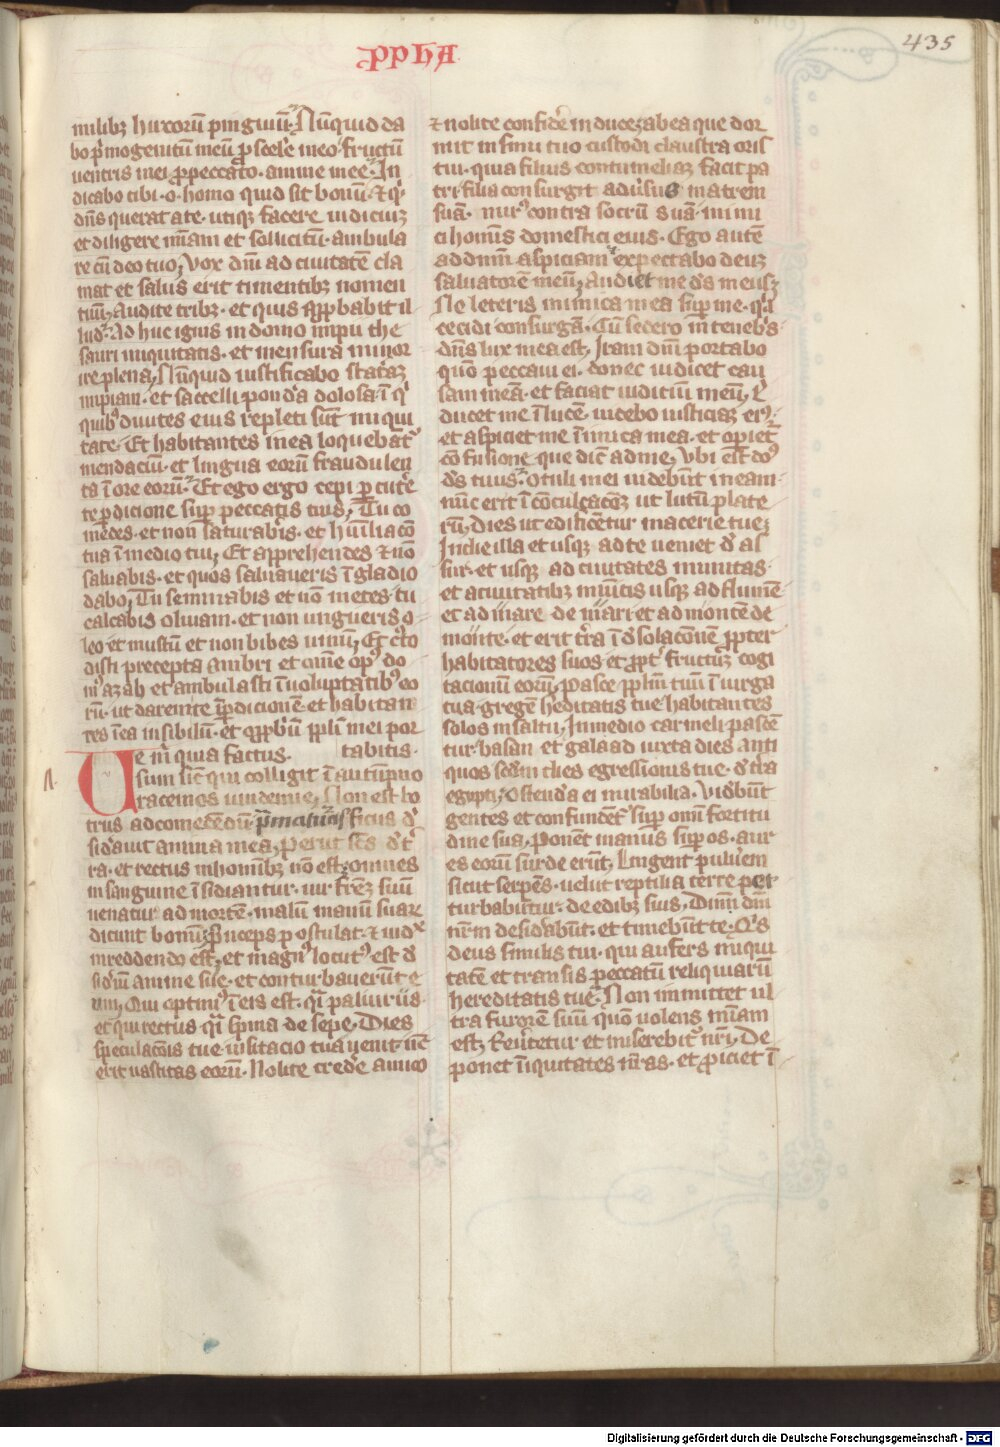 PPHA
435
milibꝫ hircorū pinguiū. Nūquid da
bo pͥmogenitū meū ꝓ scelͤe meo fructū
uentris mei ꝓ peccato. anime mee. In
dicabo tibi. o. homo quid sit bonū. ⁊ qͥd
dn̄s querat a te. utiqꝫ facere iudiciuꝫ
et diligere mīam et sollicitū. ambula
re cū deo tuo. Vox dn̄i ad ciuitatē cla
mat et salus erit timentibꝫ nomen
tuū. Audite tribꝫ. et quis aꝓbabit il
lud. Ad huc ignis in domo impii the
sauri iniquitatis. et mensura minor
ire plena. Nūquid iustificabo stateraꝫ
impiam. et saccelli pondͤa dolosa. ī qͥ
quibꝰ diuites eius repleti sūt iniqui
tate. Et habitantes in ea loquebātͬ
mendaciū. et lingua eorū fraudulen
ta ī ore eorū. Et ego ergo cepi ꝑcutͤe
te ꝑdicione suꝑ peccatis tuis. Tu co
medes. et non saturabͤis. et hūiliacō
tua ī medio tui. Et apprehendes ⁊ nō
saluabis. et quos saluaueris ī gladio
dabo. Tu seminabis et nō metes. tu
calcabis oliuam. et non ungueris o
leo et mustū et non bibes uinū. Et cͧto
disti precepta ambri et om̄e opꝰ do
mꝰ azab et ambulasti ī uoluptatibꝰ eo
rū. ut darem te ꝑdicionē et habitan
tes ī ea in sibilū. et opprobͥū ppl̄i mei por
tabitis.
Ve m̄ quia factus.
sum sic̄ qui colligit ī autūpno
racemos uindemie. Non est bo
trus ad comedēdū. pͥmaturas ficus dͤ
sidͤauit anima mea. Periit sc̄s dͤ tͬ
ra. et rectus in hominibꝫ nō est. omnes
in sanguine īsidiantur. uir fr̄eꝫ suū
uenatur ad mortē. malū manuū suarꝫ
dicunt bonū. pͥnceps postulat. ⁊ iudͯ
in reddendo est. et magnꝰ locutꝰ est dͤ
sidͤiū anime sue. et conturbauerūt e
um. Qui optimꝰ ī eis est. qͣi paliurus.
et qui rectus qͣi spina de sepe. Dies
speculacōis tue. uisitacio tua uenit. nūc
erit uastitas eorū. Nolite credͤe amico
⁊ nolite confidͤe in duce. ab ea que dor
mit in sinu tuo custodi claustra oris
tui. quia filius contumeliaꝫ facit pa
tri. filia consurgit aduͤsus matrem
suā. nurꝰ contra socrū suā. inimi
ci hominis domestici eius. Ego autē
ad dn̄m aspiciam expectabo deuꝫ
saluatorē meū. Audiet me dͤs meus.
Ne leteris inimica mea suꝑ me. qͥa
cecidi consurgā. Cū sedero in tenebͥs.
dn̄s lux mea est. Iram dn̄i portabo
quō peccaui ei. donec iudicet cau
sam meā. et faciat iudiciū meū. E
ducet me ī lucē. uidebo iusticiaꝫ eiꝰ.
et aspiciet me īimica mea. et opͥetͬ
cōfusione que dic̄ ad me. Vbi est dn̄s
dͤs tuus. Oculi mei uidebūt in eam.
nūc erit ī cōculcacōeꝫ ut lutū plate
rū. dies ut edificētur macerie tue.
In die illa et usqꝫ ad te ueniet dͤ as
sur. et usqꝫ ad ciuitates munitas.
et a ciuitatibꝫ mūitis usqꝫ ad flumē.
et ad mare de mari et ad montē de
monte. et erit tͬra ī dͤsolacōnē ꝓpter
habitatores suos et ꝓptͬ fructuꝫ cogi
tacionū eorū. Pasce ppl̄m tuū ī uirga
tua. gregē hͤeditatis tue habitantes
solos in saltu. In medio carmeli pascē
tur. basan et galaad iuxta dies anti
quos scd̄m dies egressionis tue. dͤ tͬra
egypti. Ostendͣ ei mirabilia. Vidͤbūt
gentes et confundētͬ suꝑ om̄i fortitu
dine sua. Ponent manus suꝑ os. aur
es eorū surde erūt. Lingent puluͤem
sicut serpēs. uelut reptilia terre per
turbabūtur. de edibꝫ suis. Dn̄m dm̄
nr̄m desidͤabūt. et timebūt te. Qͥs
deus similis tui. qui aufers iniqui
tatē et transis peccatū reliquiarū
hereditatis tue. Non immittet ul
tra furorē suū quō uolens mīam
est. Reuͤtetur et miserebitͬ nr̄i. De
ponet īiquitates nr̄as. et ꝓiciet ī
Digitalisierung gefördert durch die Deutsche Forschungsgemeinschaft - DFG